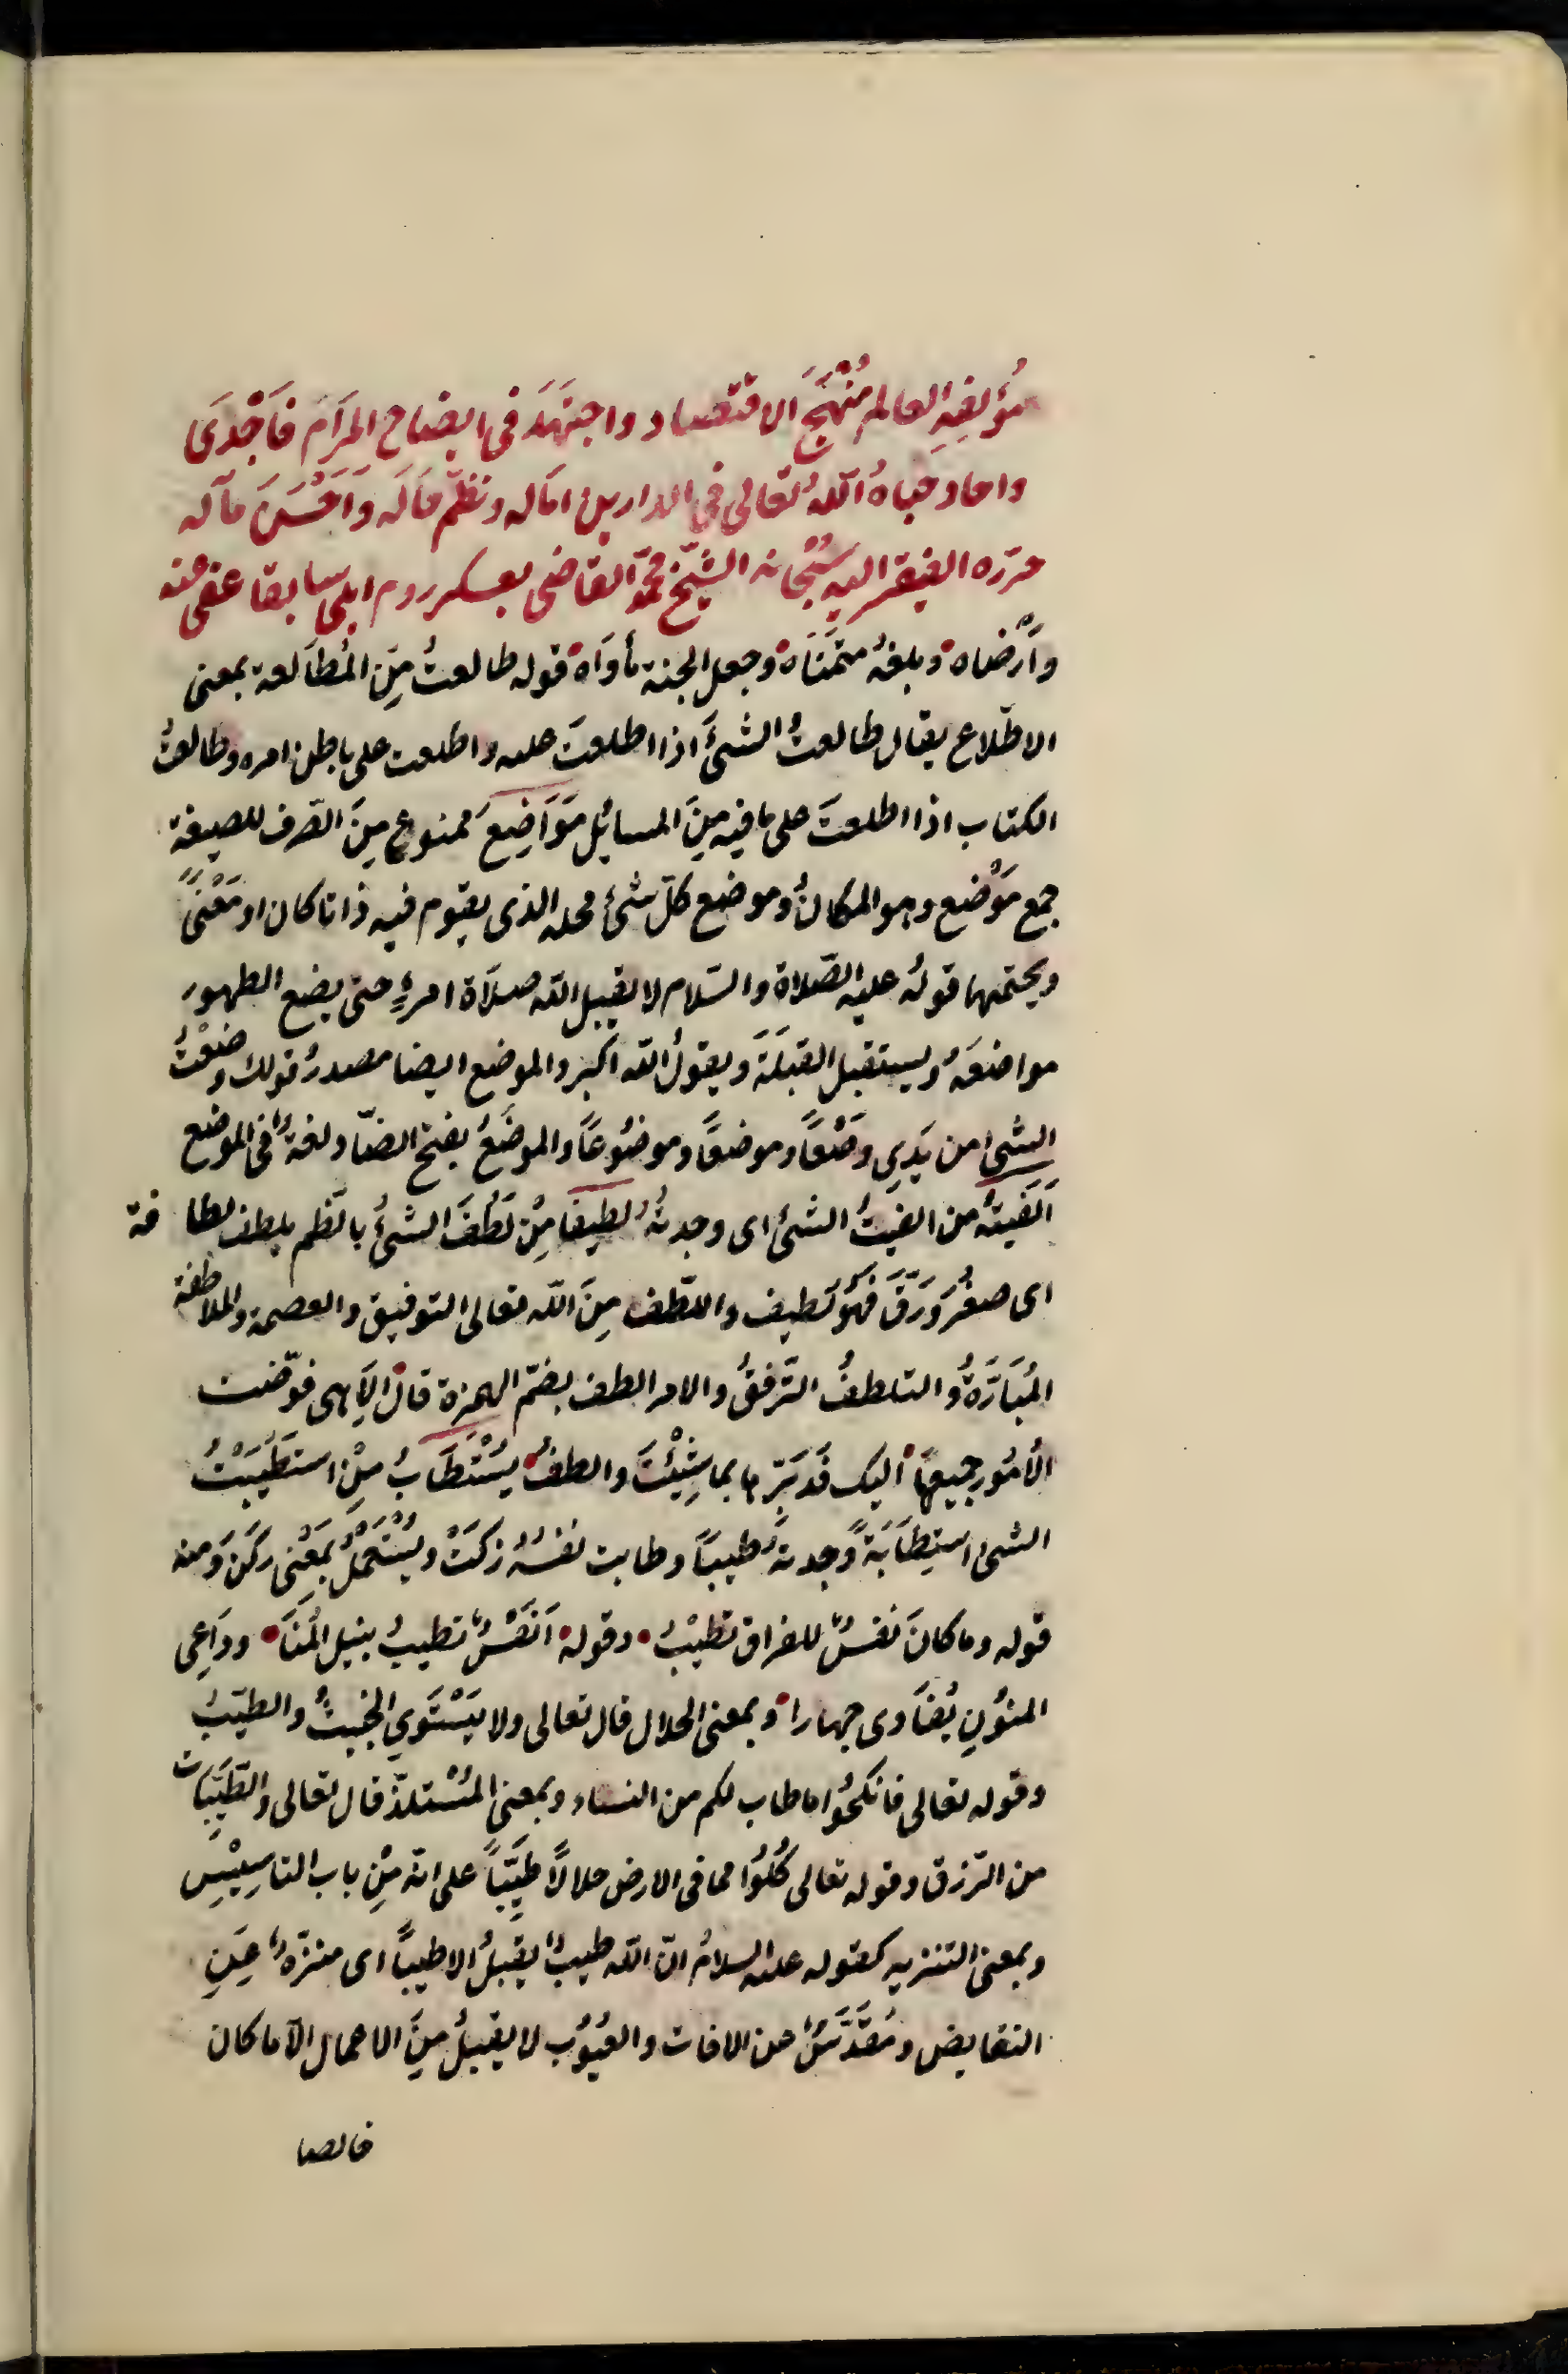 مُؤلفِهِ العالم مُنْهَجَ الاقتصاد واجتَهَدَ فى ايضاح المرَام فَاَجْدَى
واجاد حَباهُ اللّهُ تعالى فى الدارين امَاله ونظّم حَالَه وَاَحْسَنَ مآله
حرّره الفقير اليه سُبْحَانه الشيّخ محمّد القاضى بعسكر روم ايلى سابقا عفى عنه
وَاَرْضاه وبلغهُ متمَنَاهُ وجعل الجنة مأوَاهُ قوله طالعتُ مِنَ المُطاَلعة بمعنى
الاطّلاع يقال طالعتُ الشئَ اذا اطلعتَ عليه واطلعت على باطن امره وطالعتُ
الكتاب اذا اطلعتَ على ما فيه مِنَ المسائِل مَوَاضِعَ ممنوع مِنَ الصّرف للصيغة
جمع مَوْضع وهو المكانُ وموضع كلّ شئ محله الذى يقوم فيه ذاتا كان او مَعْنىً
ويحتملهما قولُه عليه الصّلاة والسّلام لا يقبل اللّه صلاَة امرءٍ حتى يضع الطهورَ
مواضعَهُ ويستقبل القبلَةَ ويقولُ اللّه اكبر والموضع ايضا مصدرُ قولك وضَعْتُ
الشئ من يَدِى وضْعًا وموضعًا وموضُوعًا والموضَعُ بفتح الضّاد لغةٌ فى الموضع
اَلفيتُه من الفيتُ الشئ اى وجدتُهُ لطيفًا مِنْ لَطُفَ الشئُ بالضّم يلطف لطافة
اى صغُرَ وَرَقَّ فَهُوَ لَطيف واللطّف مِنَ اللّه تعالى التوفيق والعصمة والملاطفة
المُبَارَّةُ والتلطفُ التّرفقُ والامر الطف بضمّ الهمزة قال اِلَاهى فوّضت
الاُمُور جميعهَا اليك فَدَبِّرْها بما شِئْتَ والطفْ يُسْتَطَابُ مِنْ استَطَيبْتُ
الشئ اسْتِطَابَةً وجدتهُ طيبًا وطابت نفسُهُ زكَتْ ويُسْتَعْملُ بمَعْنى ركَنَ ومنه
قوله وما كانَ نفسٌ للفراق تطيبُ وقوله اَنفسٌ تطيبُ بنيل المُنَا ودَاعِى
المنوُنِ يُنَادى جهارا وبمعنى الحلال قال تعالى ولا يَسْتَوى الخبيثُ والطيّبُ
وقوله تعالى فانكحُوا ما طاب لكم من النساء وبمعنى المُسْتلذّ قال تعالى والطّيّبَات
من الرّزق وقوله تعالى كُلُوا مما فى الارض حلالاً طيّبًا على انّه مِنْ باب التاسِيْسِ
وبمعنى التنزيه كقوله عليه السلامُ انّ اللّه طيبٌ لا يقبلُ الا طيبًا اى منزّهٌ عَنِ
النقايض ومُقَدَّسٌ عن الافات والعُيُوْبِ لا يقبلُ مِنَ الاعمال الاّ ما كان
خالصا